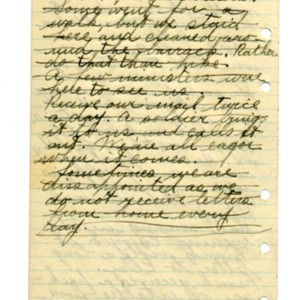 Some went for a
walk, but we staid
here and cleaned aro-
und the barrack. Rather
do that than hike.
A few ministers were
here to see us.
receive our mail twice
a day. A soldier brings
it to us and calls it
out. We are all eager
when it comes.
Sometimes we are
disappointed as we
do not receive letters
from home every
day.